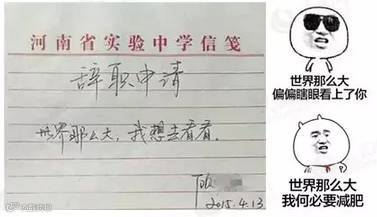 河南省实验中学信笺
辞职申请
世界那么大，我想去看看。
2015.4.13
世界那么大
偏偏瞎眼看上了你
世界那么大
我何必要减肥